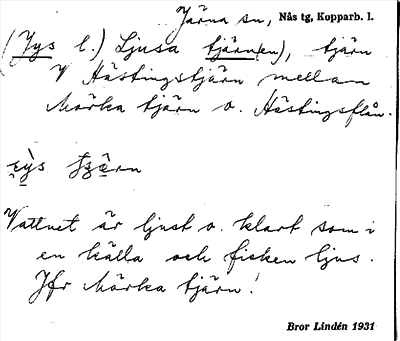 Järna sn, Nås tg, Kopparb. l.
(Jys l.) Ljusa tjärn(en), tjärn
V Hästingstjärn mellan
Mörka tjärn o. Hästingsflån.
Vattnet är ljust o. klart som i
en källa och fisken ljus.
Jfr Mörka tjärn!
Bror Lindén 1931